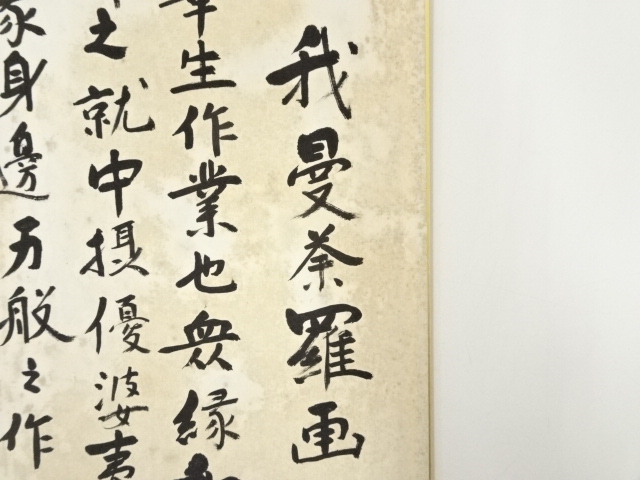 我曼荼羅画
生作業也衆縁
之就中摂優婆夷
身邊万般之作